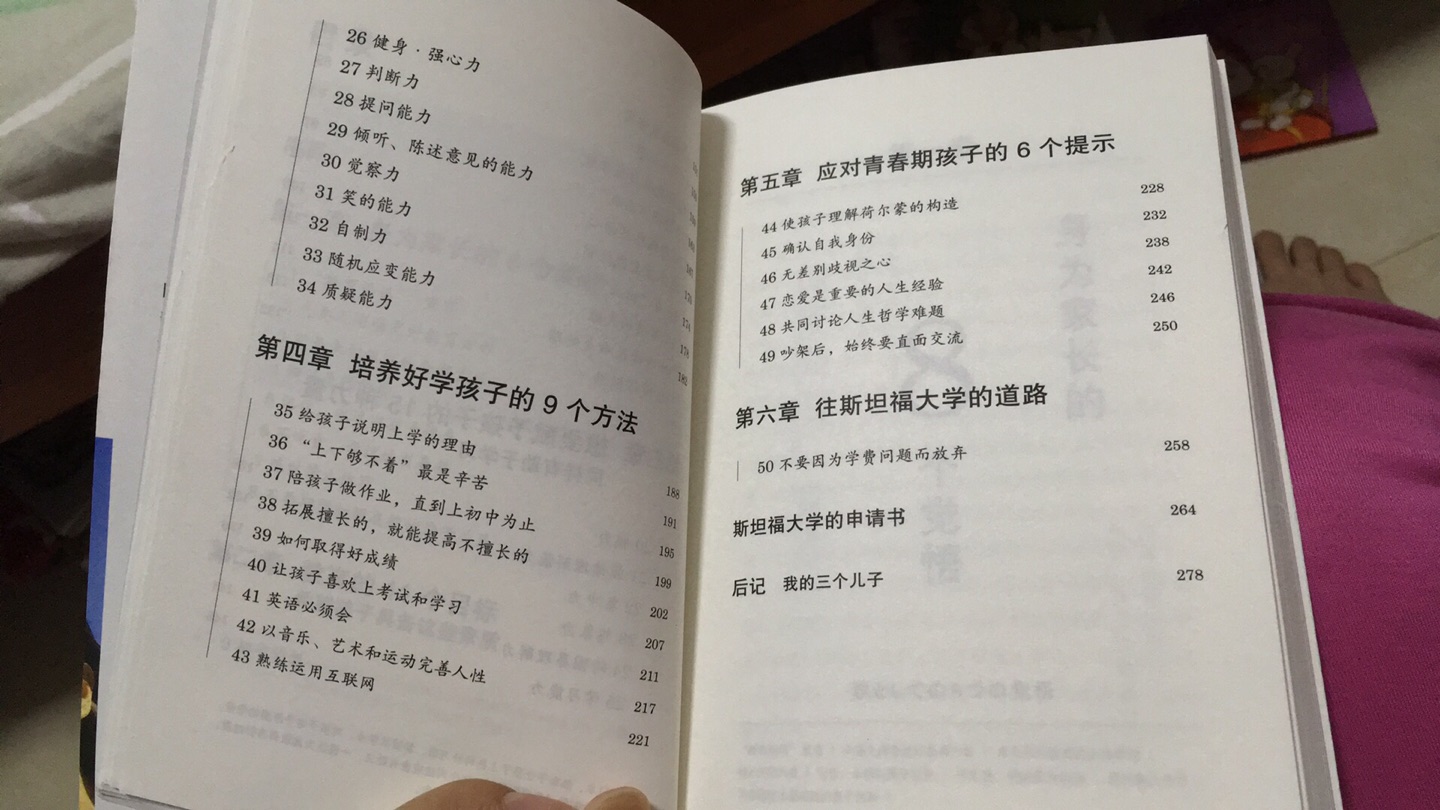 26 健身·强心力
27 判断力
28 提问能力
29 倾听、陈述意见的能力
30 觉察力
31 笑的能力
32 自制力
33 随机应变能力 178
34 质疑能力 182
第四章 培养好学孩子的 9 个方法
35 给孩子说明上学的理由 188
36 “上下够不着”最是辛苦 191
37 陪孩子做作业，直到上初中为止 195
38 拓展擅长的，就能提高不擅长的 199
39 如何取得好成绩 202
40 让孩子喜欢上考试和学习 207
41 英语必须会 211
42 以音乐、艺术和运动完善人性 217
43 熟练运用互联网 221
第五章 应对青春期孩子的 6 个提示
44 使孩子理解荷尔蒙的构造 228
45 确认自我身份 232
46 无差别歧视之心 238
47 恋爱是重要的人生经验 242
48 共同讨论人生哲学难题 246
49 吵架后，始终要直面交流 250
第六章 往斯坦福大学的道路
50 不要因为学费问题而放弃 258
斯坦福大学的申请书 264
后记 我的三个儿子 278